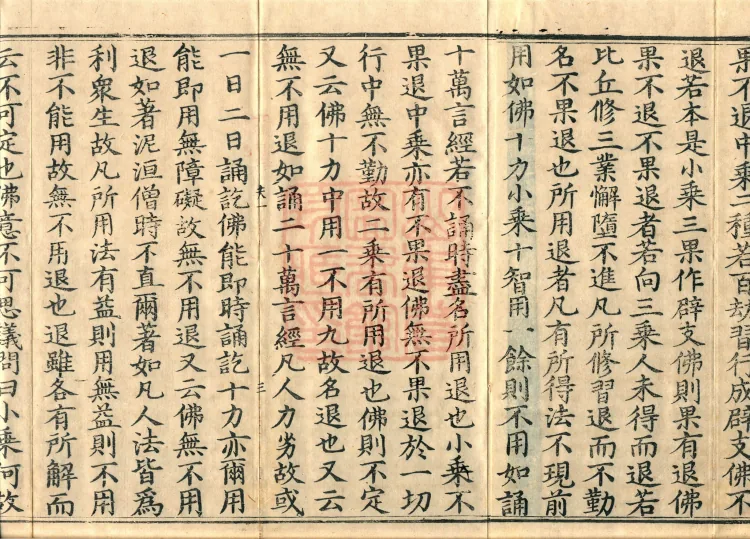 果不退中乘二種若百劫習行成辟支佛不
退若本是小乘三果作辟支佛則果有退佛
果不退不果退者若向三乘人未得而退若
比丘修三業懈墮不進凡所修習退而不勤
名不果退也所用退者凡有所得法不現前
用如佛十力小乘十智用一餘則不用如誦
十萬言經若不誦時盡名所用退也小乘不
果退中乘亦有不果退佛無不果退於一切
行中無不勤故二乘有所用退也佛則不定
又云佛十力中用一不用九故名退也又云
無不用退如誦二十萬言經凡人力劣故或
夫一 三
一日二日誦訖佛能即時誦訖十力亦爾用
能即用無障礙故無不用退又云佛無不用
退如著泥洹僧時不直爾著如凡人法皆為
利衆生故凡所用法有益則用無益則不用
非不能用故無不用退也退雖各有所解而
云不可定也佛意不可思議問曰小乘何故